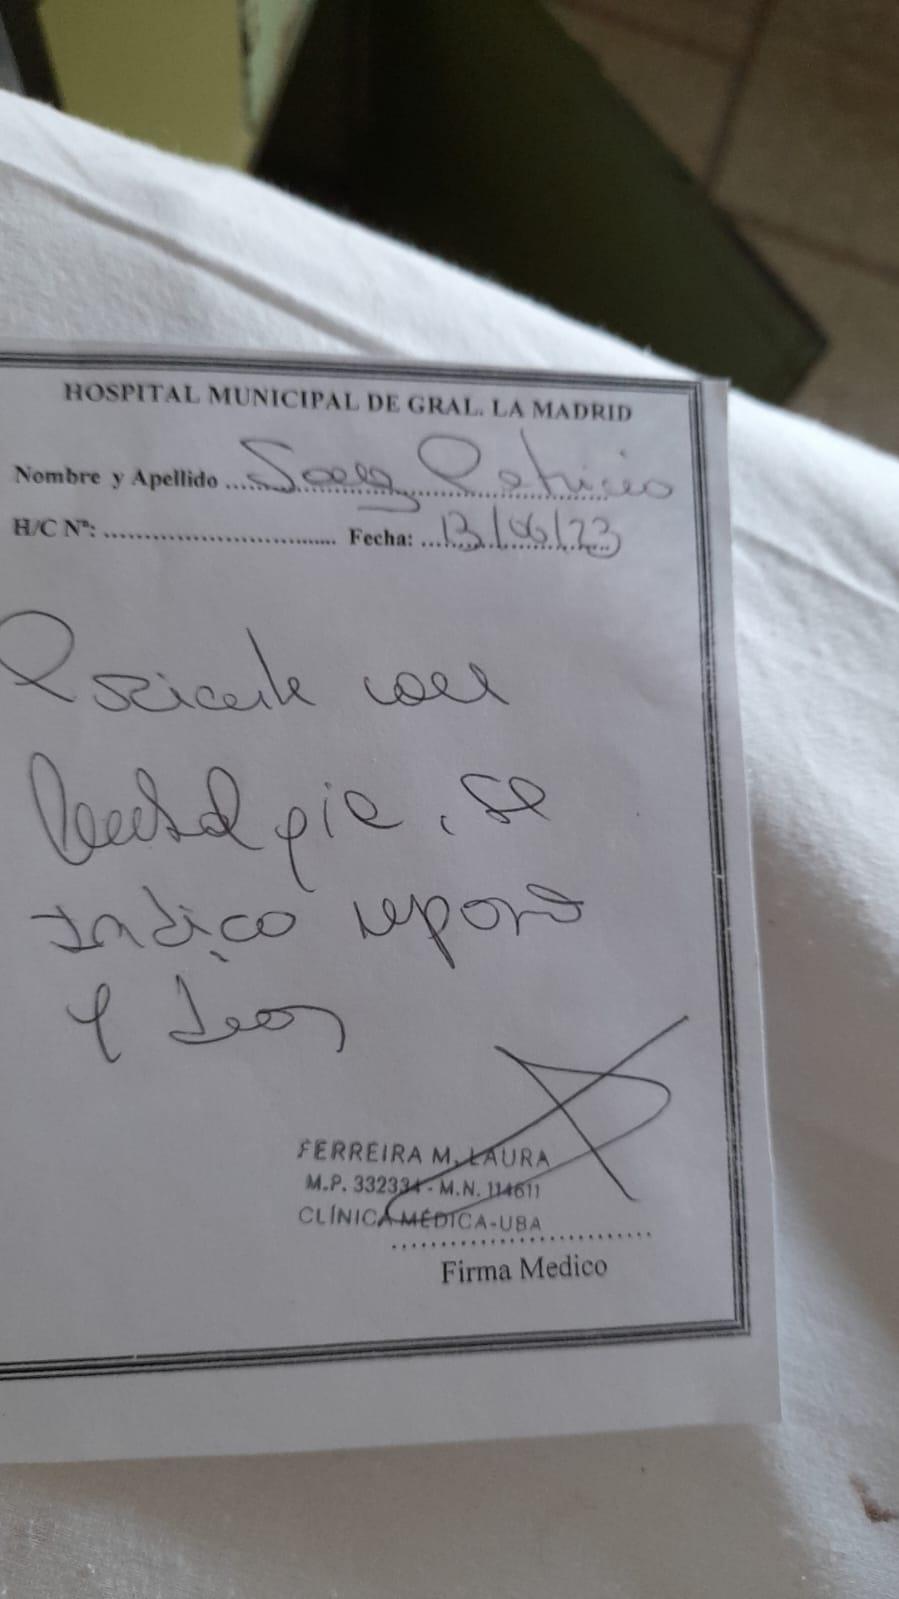 HOSPITAL MUNICIPAL DE GRAL. LA MADRID
Nombre y Apellido ..... Saez Patricio
H/C Nº: ..... Fecha: ... 13/06/23
Paciente con
se
Indico reposo
y
FERREIRA M. LAURA
M.P. 332334 - M.N. 114611
CLÍNICA MÉDICA-UBA
Firma Medico